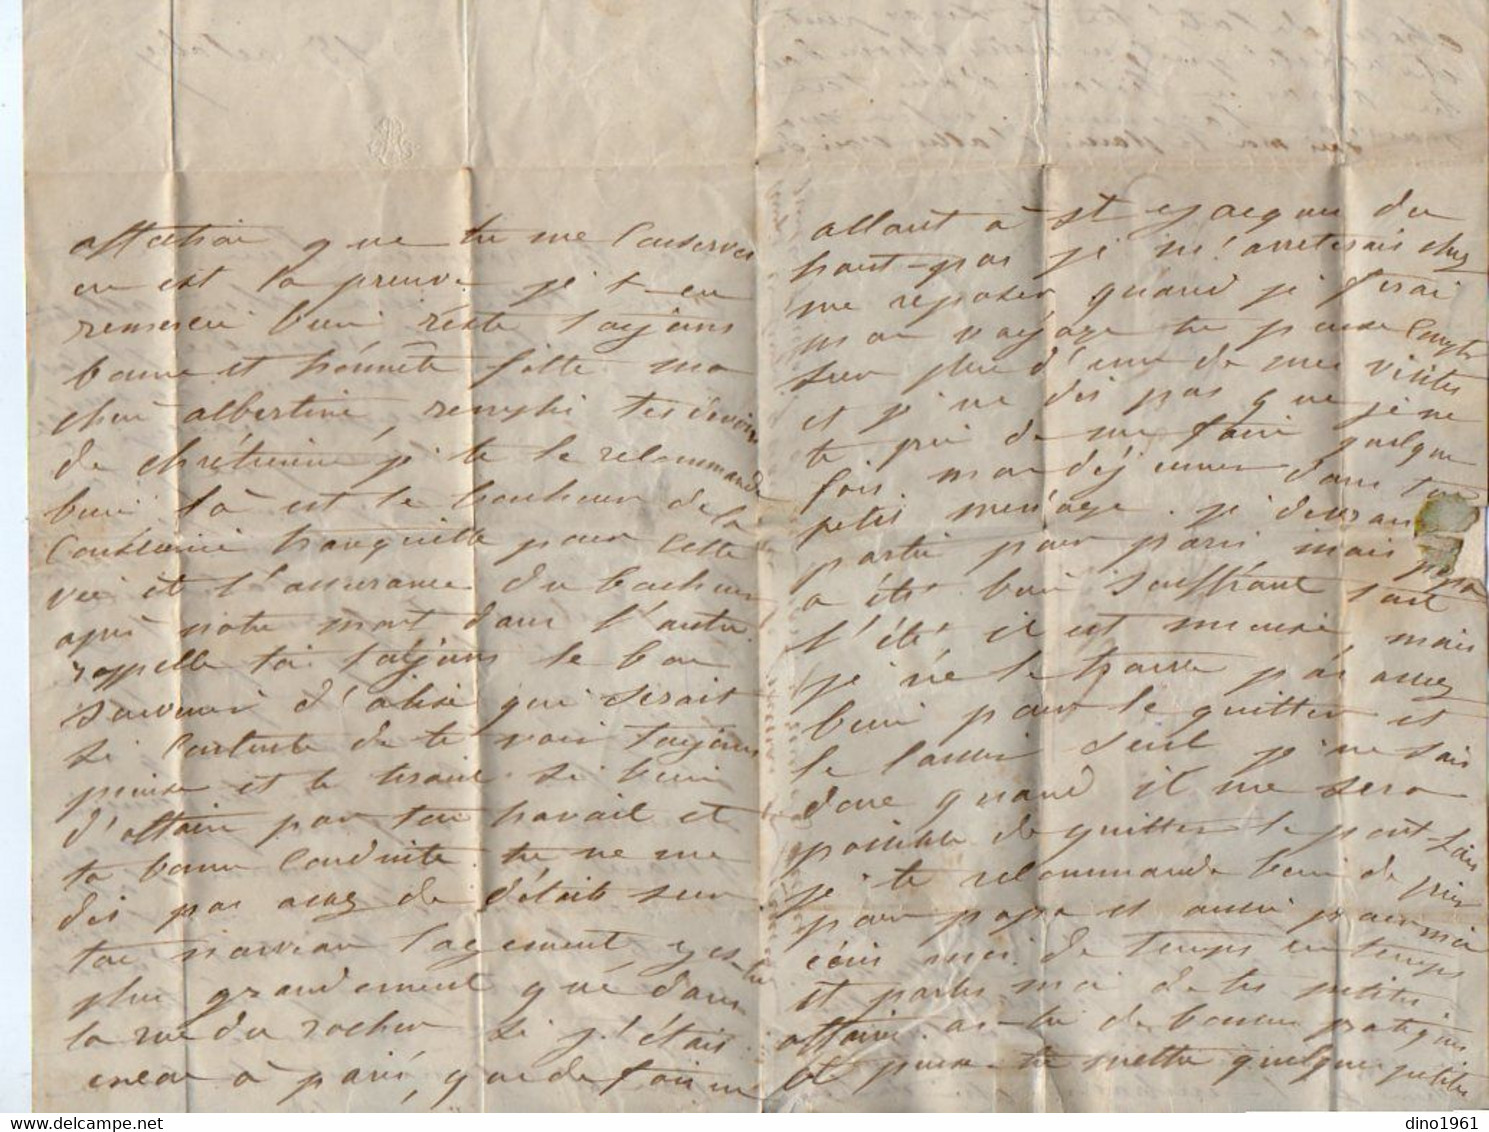 18 octobre
affection que tu me conserves
en est la preuve je t-en
remerci bien reste toujours
bonne et honnête fille ma
cher albertine, rempli tes devoirs
de chrétienne, je te le recommande
bien là est le bonheur de la
conscience tranquille pour cette
vie et l'assurance du bonheur
après notre mort dans l'autre.
rappelle toi toujours le bon
souvenir d'alise qui serait
si contente de te voir toujours
pieuse et te tirant si bien
d'affaire par ton travail et
ta bonne conduite. tu ne me
dis pas assez de détails sur
ton nouveau logement, y es-tu
plus grandement que dans
la rue du rocher si j'étais
encor à paris, que de fois
allant à st jacques du
haut-pas je m'arreterais chez
me reposer quand je ferai
mon voyage tu peux compter
sur plus d'une de mes visites
et je ne dis pas que je ne
te prie de me faire quelque
fois mon déjeuner dans ton
petit ménage. je devrais
partir pour paris mais papa
a été bien souffrant tout
l'été il est mieux mais
je ne le trouve pas assez
bien pour le quitter et
le laisser seul je ne sais
donc quand il me sera
possible de quitter le pont-
je te recommande bien de prier
pour papa et aussi pour moi
écris moi de temps en temps
et parles moi de tes petites
affaires. as-tu de bonnes pratiques
et peux-tu mettre quelque petites
dino1961